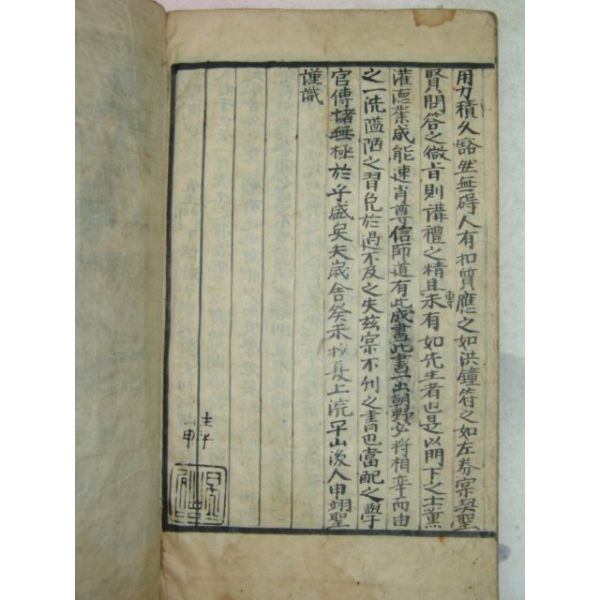 用力積久豁然無碍人有扣質應之如洪鐘符之如左券宗與聖
賢問答之微旨則講禮之精且專未有如先生者也是以門下之士薰
灌德業咸能連肖尊信師道有此盛書此書一出朝野必將相率而由
之一洗陋陋之習免於過不及之失玆宗不刊之書也當配之學
官傳諸無極於乎盛矣夫歲舍癸未抄夏上浣平山後人申翊聖
謹識
主平
申